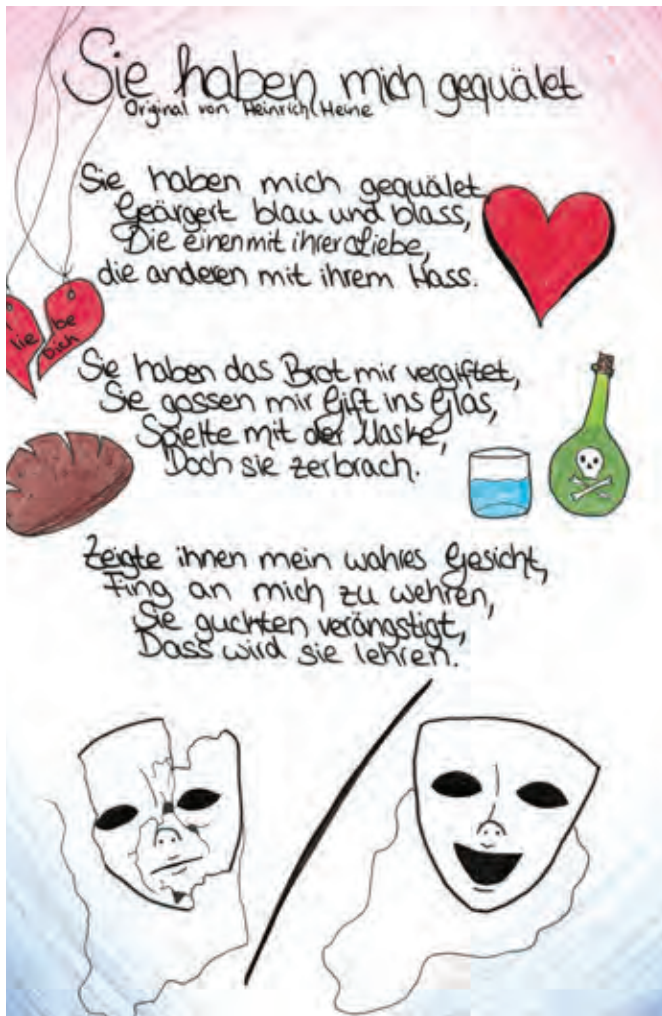 Sie haben mich gequälet
Original von Heinrich Heine
Sie haben mich gequälet
Geärgert blau und blass,
Die einen mit ihrer Liebe,
die anderen mit ihrem Hass.
lie be
Dich
Sie haben das Brot mir vergiftet,
Sie gossen mir Gift ins Glas,
Spielte mit der Maske,
Doch sie zerbrach.
Zeigte ihnen mein wahres Gesicht,
Fing an mich zu wehren,
Sie guckten verängstigt,
Dass wird sie lehren.